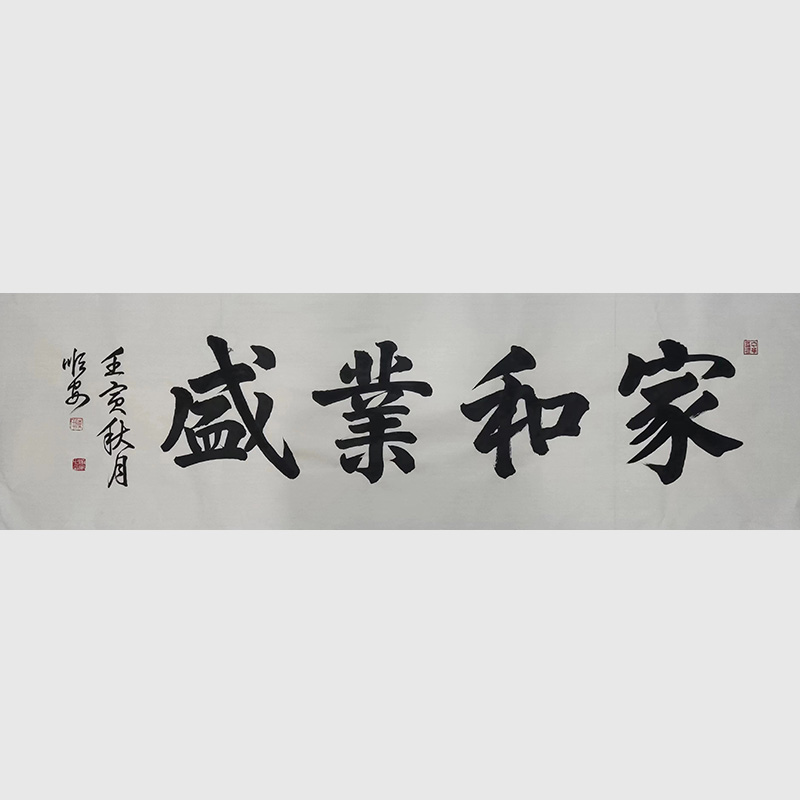 家和業盛
壬寅秋月
順安